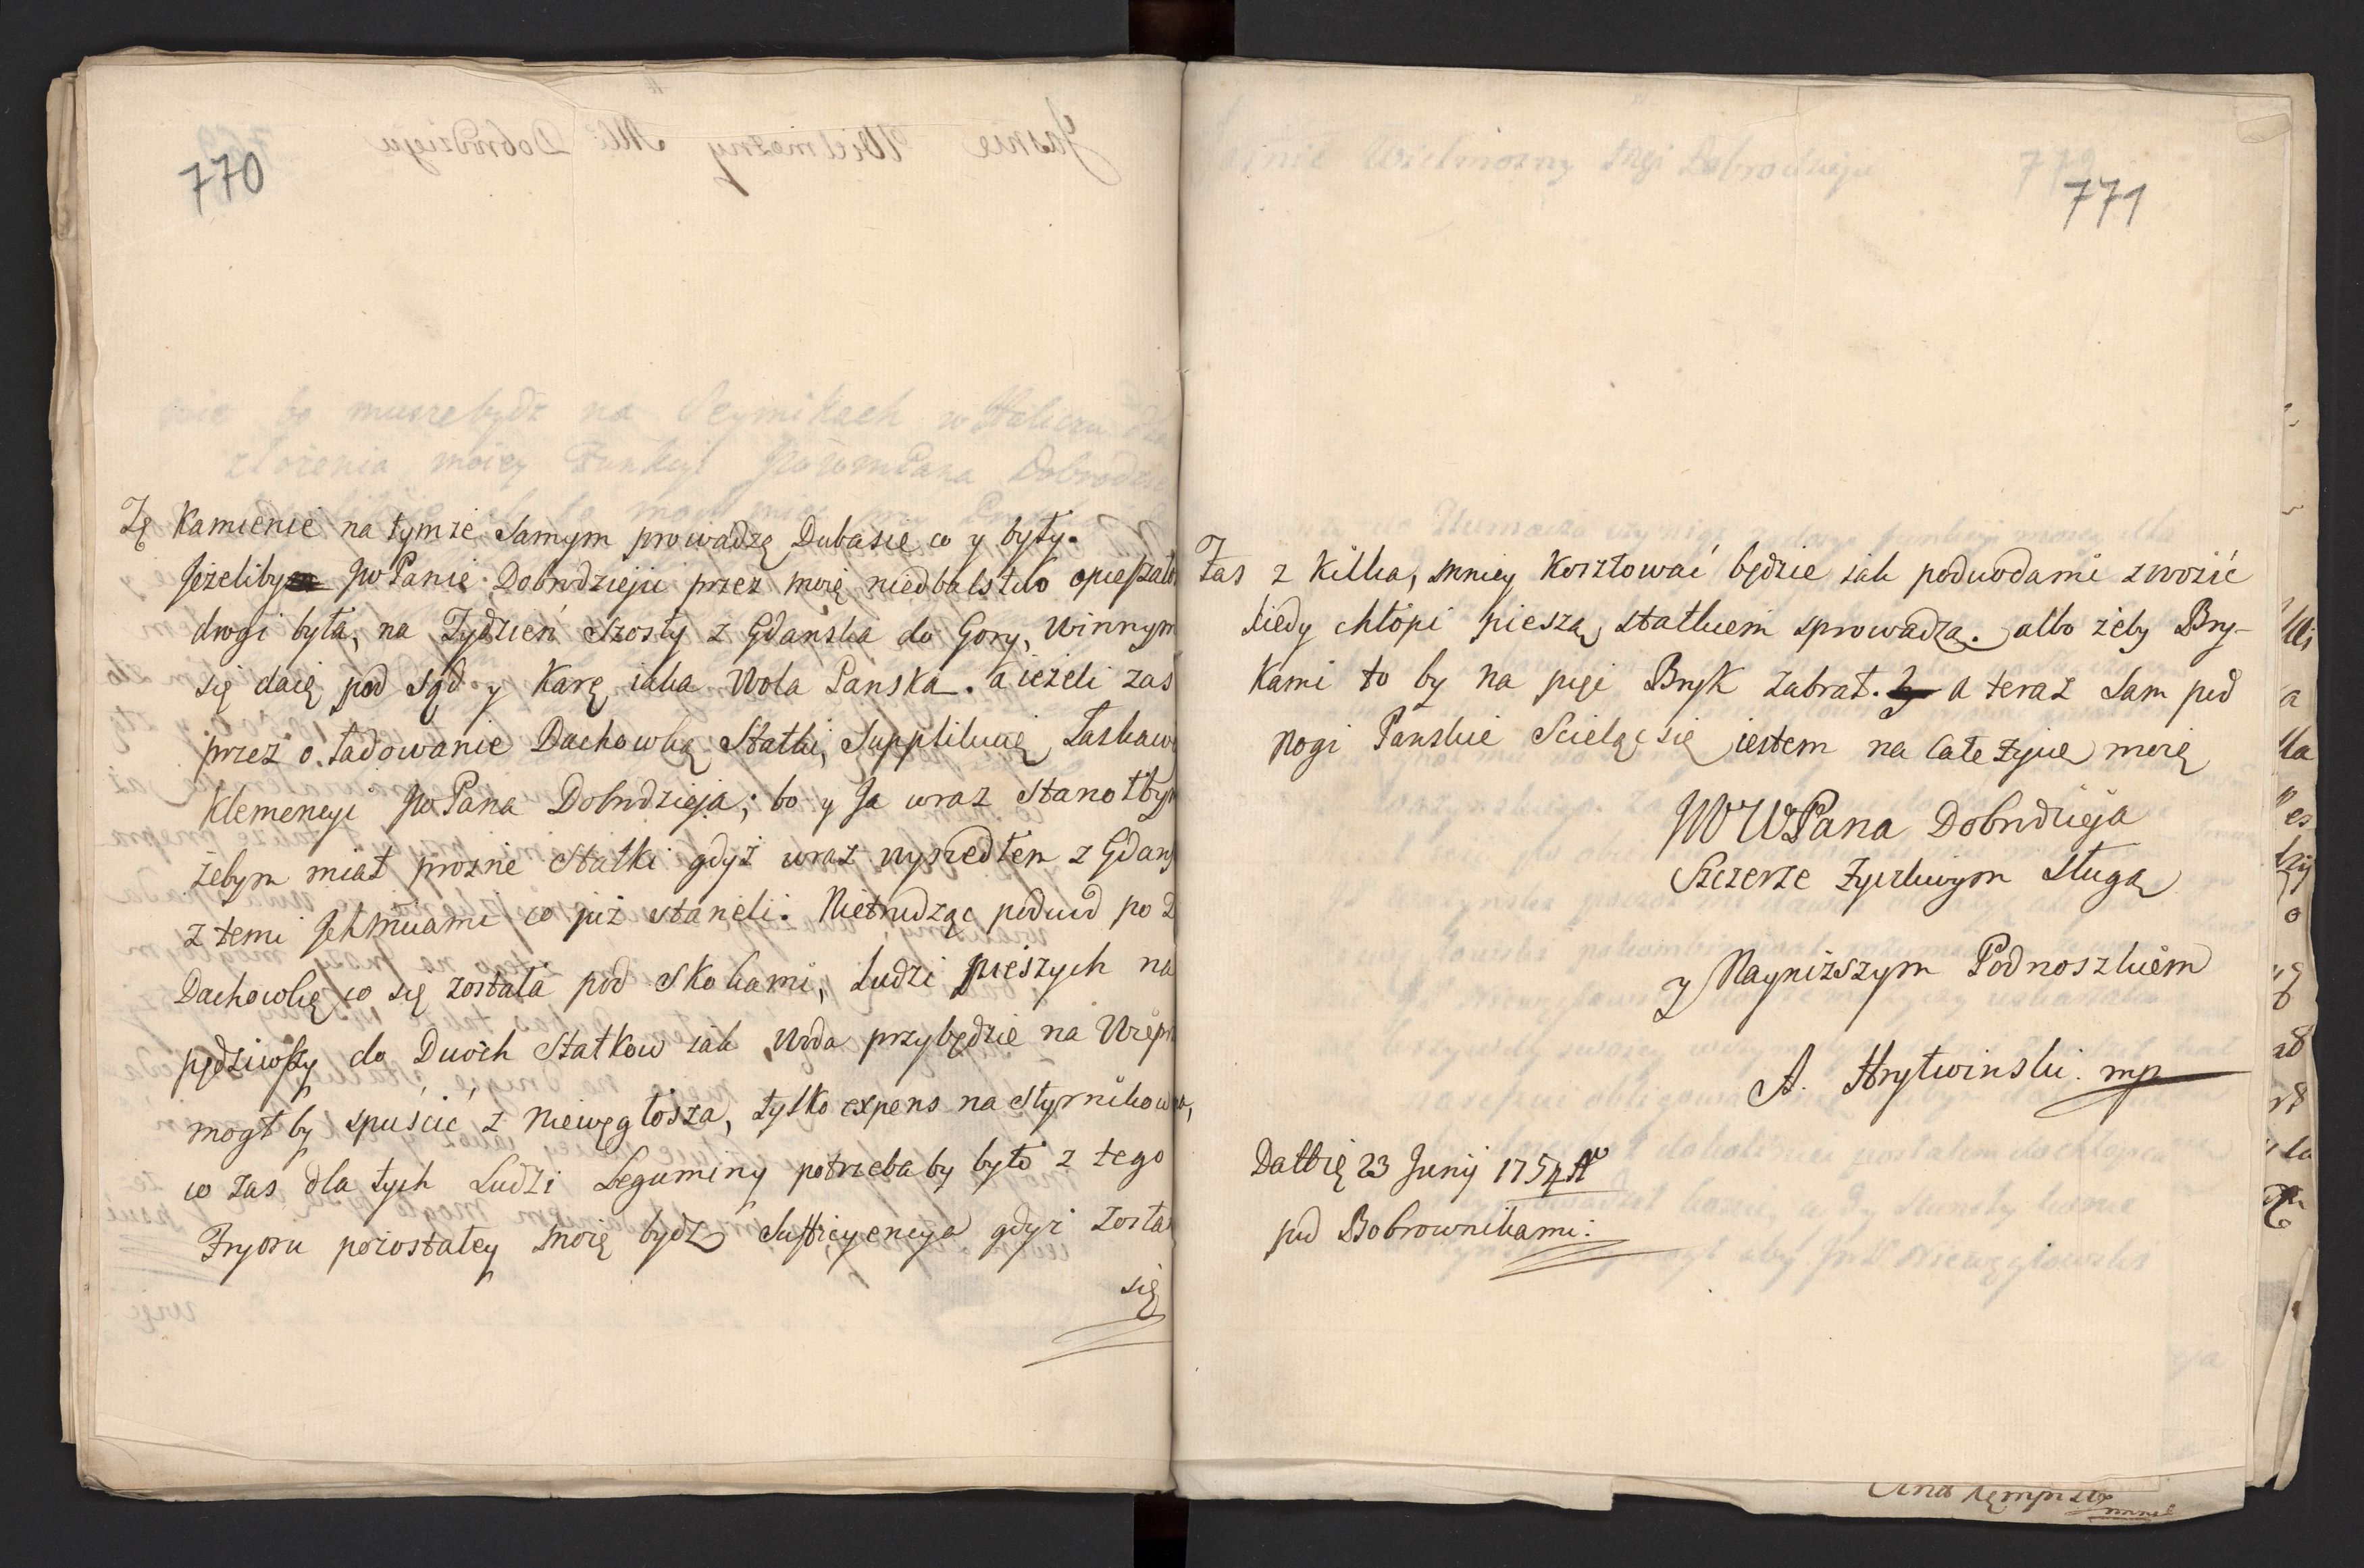 770
Zę Kamienie na tymze Samym prowadzę Dubasie co y były.
Jeżeliby JWPanie Dobrodzieju przez moię niedbalstwo opieszałoś
drogi była, na Tydzień Szosty z Gdańska do Gory, winnym
się daię pod Sąd y Karę iaka Wola Panska. a ieżeli zas
przez o ładowanie Dachowką Statki, Supplikuię Łaskaw
Klemencyi JWPana Dobrodzieja; bo y Ja wraz Stanołbym
żebym miał prozne Statki gdyż wraz wyszedłem z Gdans
z temi Jchmciami co już staneli. Nietrudząc podwod po D
Dachowkę co się została pod Skokami, Ludzi pieszych na
pędziwszy do Dwóch Statkow iak Woda przybędzie na Wiepr
mogł by spuścić z Niewęgłosza, tylko expens na Styrnikow,
co zas dla tych Ludzi Leguminy potrzeba by było z tego
Fryoru pozostałey moię bydz Sufficyencya gdyż zosta
się
771
Zas z Kilka, mniey Kosztować będzie iak podwodami zwozić
kiedy chłopi pieszą statkiem sprowadzą. albo żeby Bry-
kami to by na pięć Bryk zabrał. a teraz Sam pod
nogi Panskie Scieląc się iestem na Całe życie moię
JWWPana Dobrodzieja
Szczerze życzliwym sługą
y Nayniższym Podnoszkiem
A. Hrytwinski. mp
Dattię 23 Junij 1754 Ao
pod Bobrownikami: